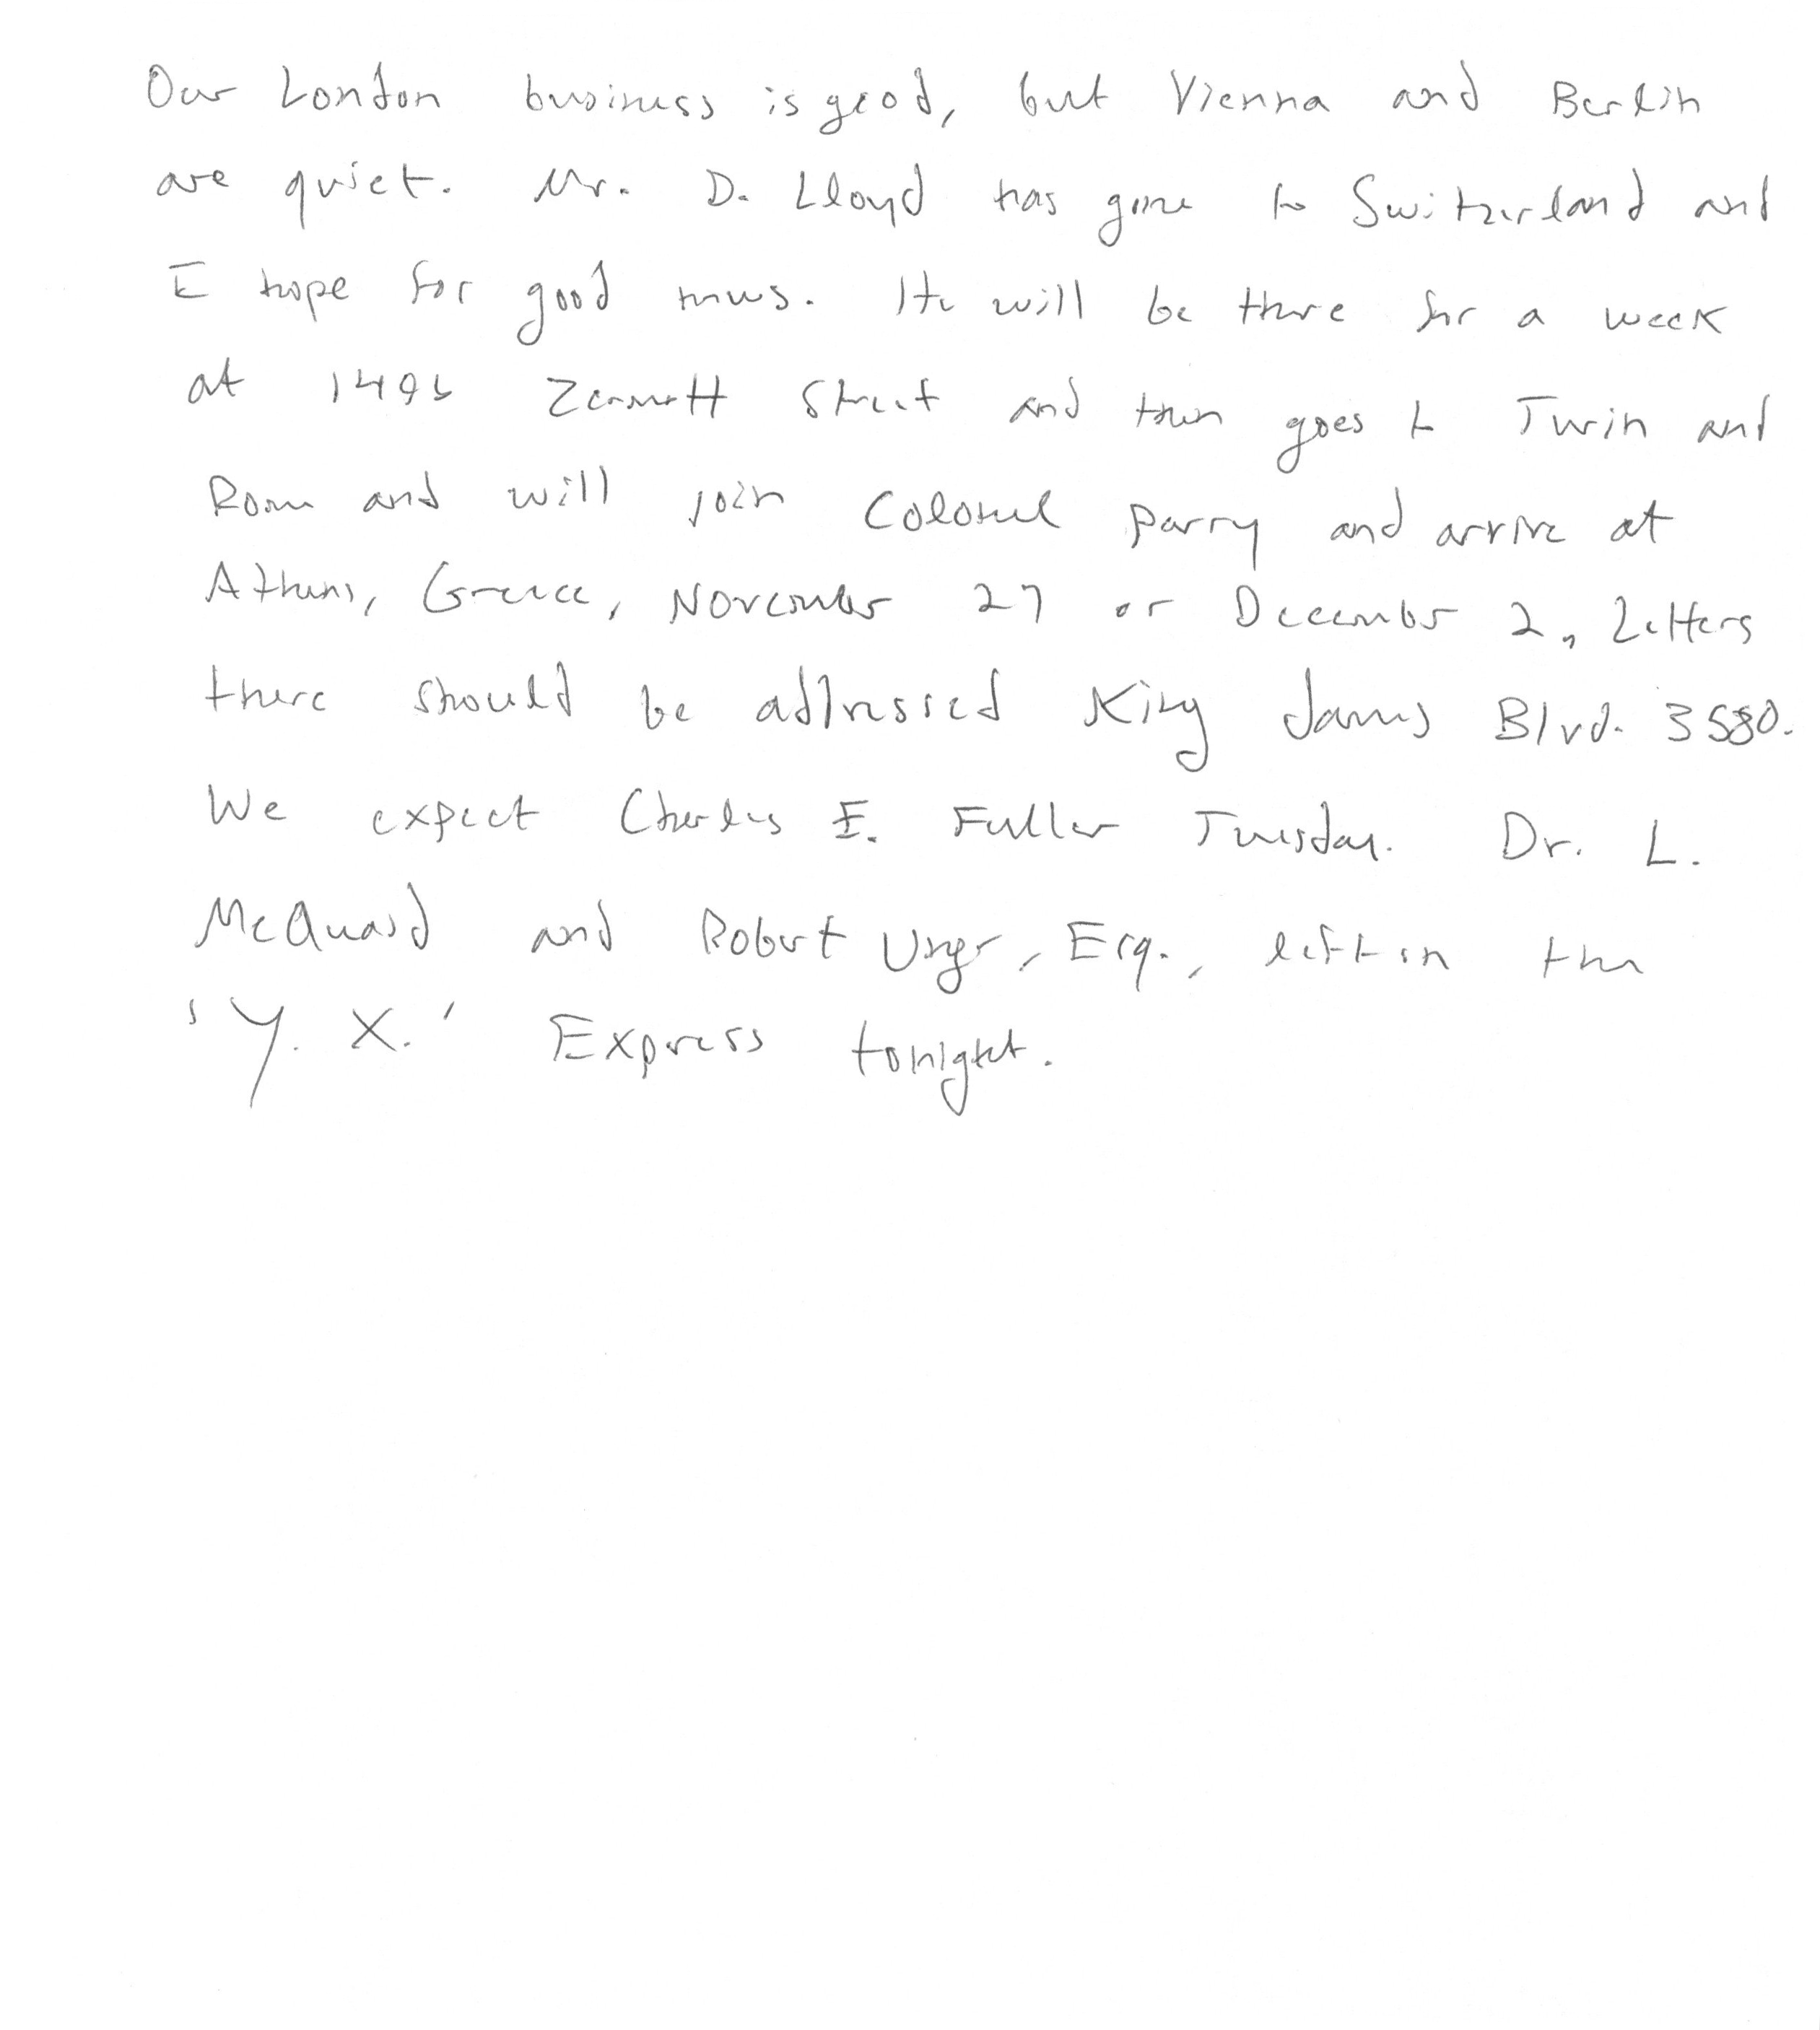 Our London business is good, but Vienna and Berlin
are quiet. Mr. D. Lloyd has gone to Switzerland and
I hope for good news. He will be there for a week
at 1496 Zermott Street and then goes to Turin and
Rome and will join Colonel Parry and arrive at
Athens, Greece, November 27 or December 2, Letters
there should be addressed King James Blvd. 3580.
We expect Charles E. Fuller Tuesday. Dr. L.
McQuaid and Robert Unger, Esq., left on the
'Y. X.' Express tonight.